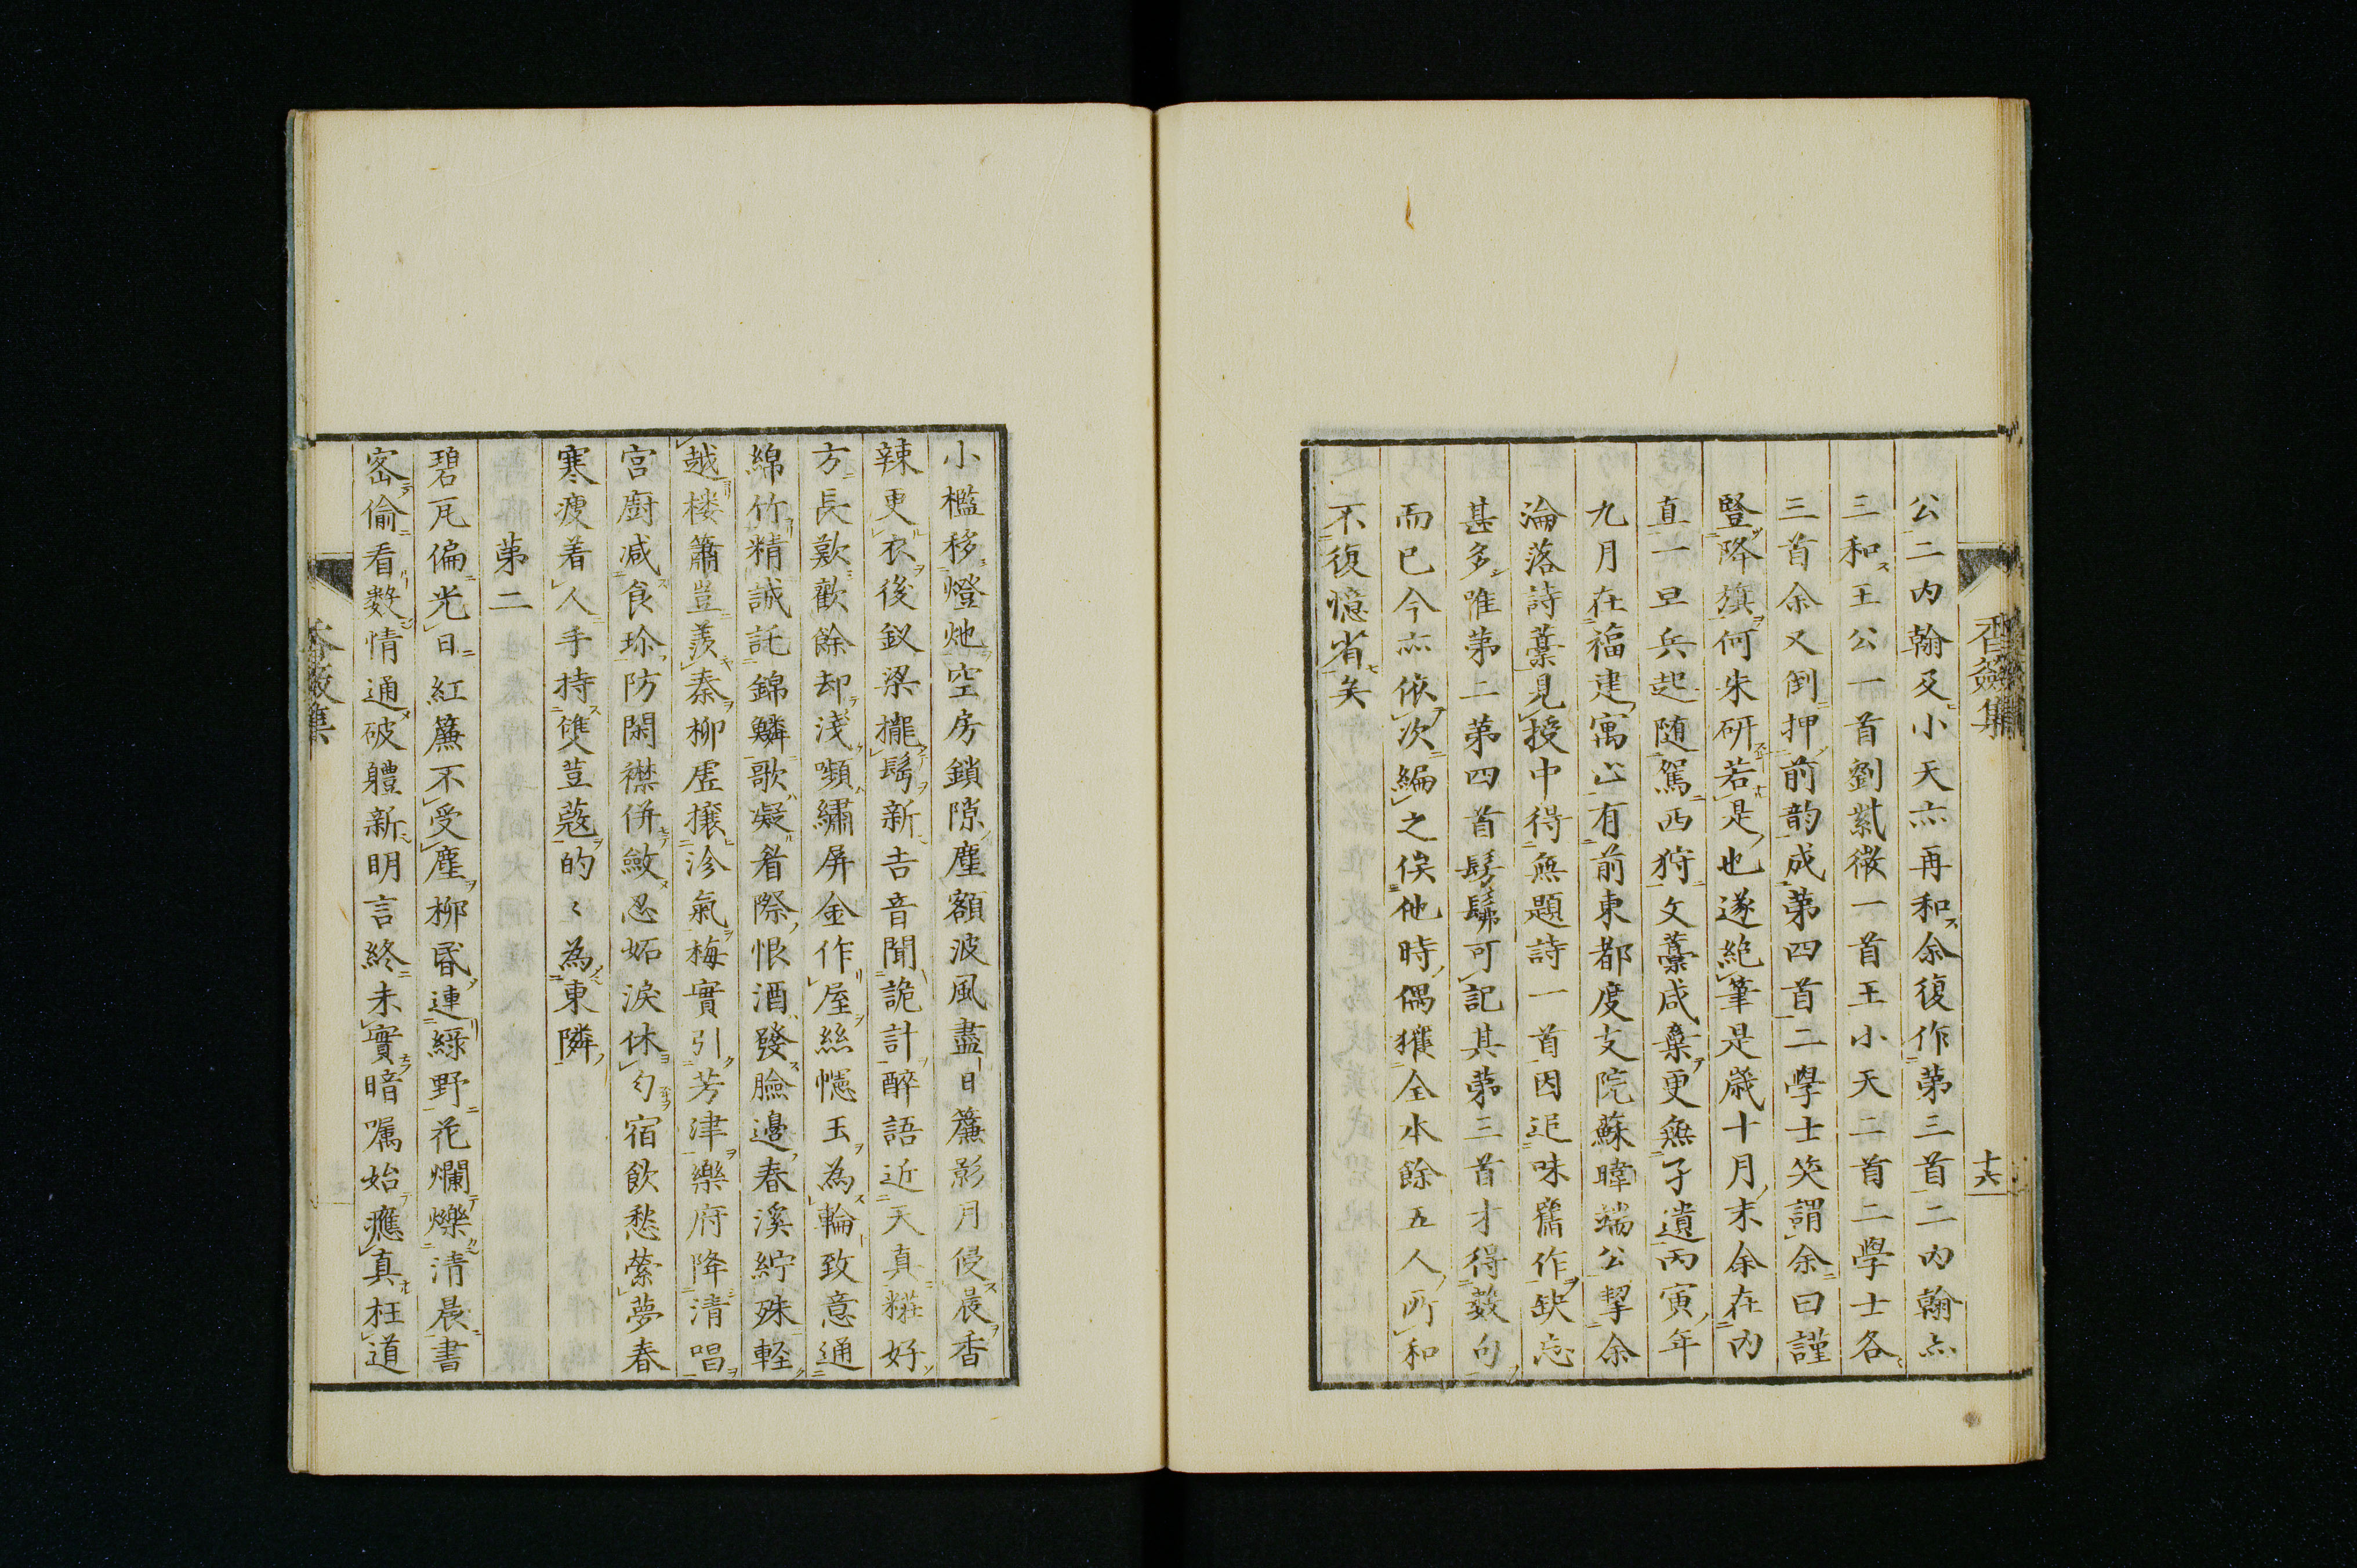 香奩集
十六
公二内翰及小天亦再和余復作第三首二内翰亦
三和王公一首劉紫微一首王小天二首二學士各
三首余又倒押前韵成第四首二學士笑謂余曰謹
竪降旗何朱研若是也遂絶筆是歳十月末余在内
直一旦兵起随駕西狩文藁咸棄更無孑遺丙寅年
九月在福建寓止有前東都度支院蘇暐端公挈余
淪落詩藁見授中得無題詩一首因追味舊作缺忘
甚多唯第二第四首髣髴可記其第三首才得数句
而已今亦依次編之俟他時偶獲全本餘五人所和
不復憶省矣
小檻移燈灺空房鎖隙塵額波風盡日簾影月侵晨香
辣更衣後釵梁攏鬢新吉音聞詭計醉語近天真糚好
方長歎歡餘却淺嚬繡屏金作屋絲幰玉為輪致意通
綿竹精誠託錦鱗歌凝眉際恨酒發臉邊春溪紵殊軽
越楼簫豈羨秦柳虚攘沴氣梅實引芳津樂府降清唱
宮廚减食珍防閑襟併斂忍妬淚休匀宿飲愁縈夢春
寒瘦着人手持雙荳蔻的〻為東隣
第二
碧瓦偏光日紅簾不受塵柳昏連綠野花爛爍清晨書
密偷看数情通破軆新明言終未實暗嘱始應真枉道
香奩集